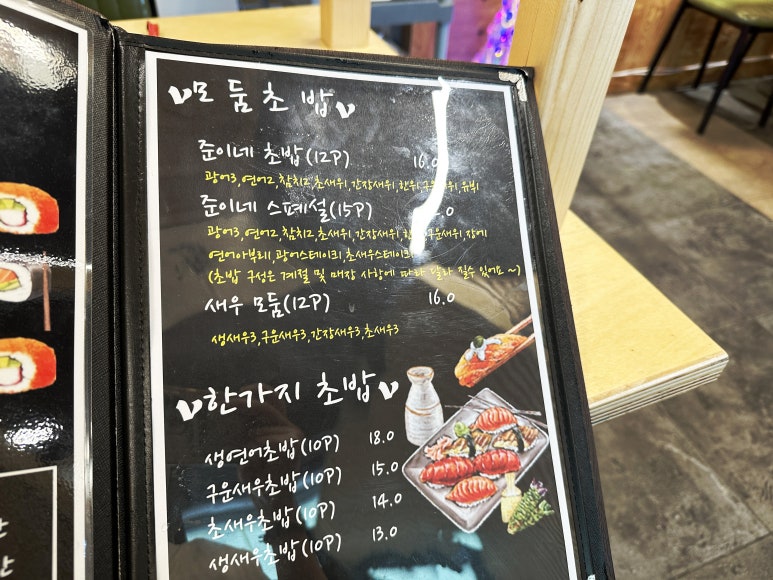 모둠초밥
준이네 초밥(12P) 16.0
광어3,연어2,참치2,초새우1,간장새우1,한우1,유뷔
준이네 스페셜(15P) .0
광어3,연어2,참치2,초새우1,간장새우1,구운새우1,장어1
연어아부리1,광어스테이크1,초새우스테이크1
(초밥 구성은 계절 및 매장 사항에 따라 달라 질수 있어요 ~)
새우 모둠(12P) 16.0
생새우3,구운새우3,간장새우3,초새우3
한가지 초밥
생연어초밥(10P) 18.0
구운새우초밥(10P) 15.0
초새우초밥(10P) 14.0
생새우초밥(10P) 13.0